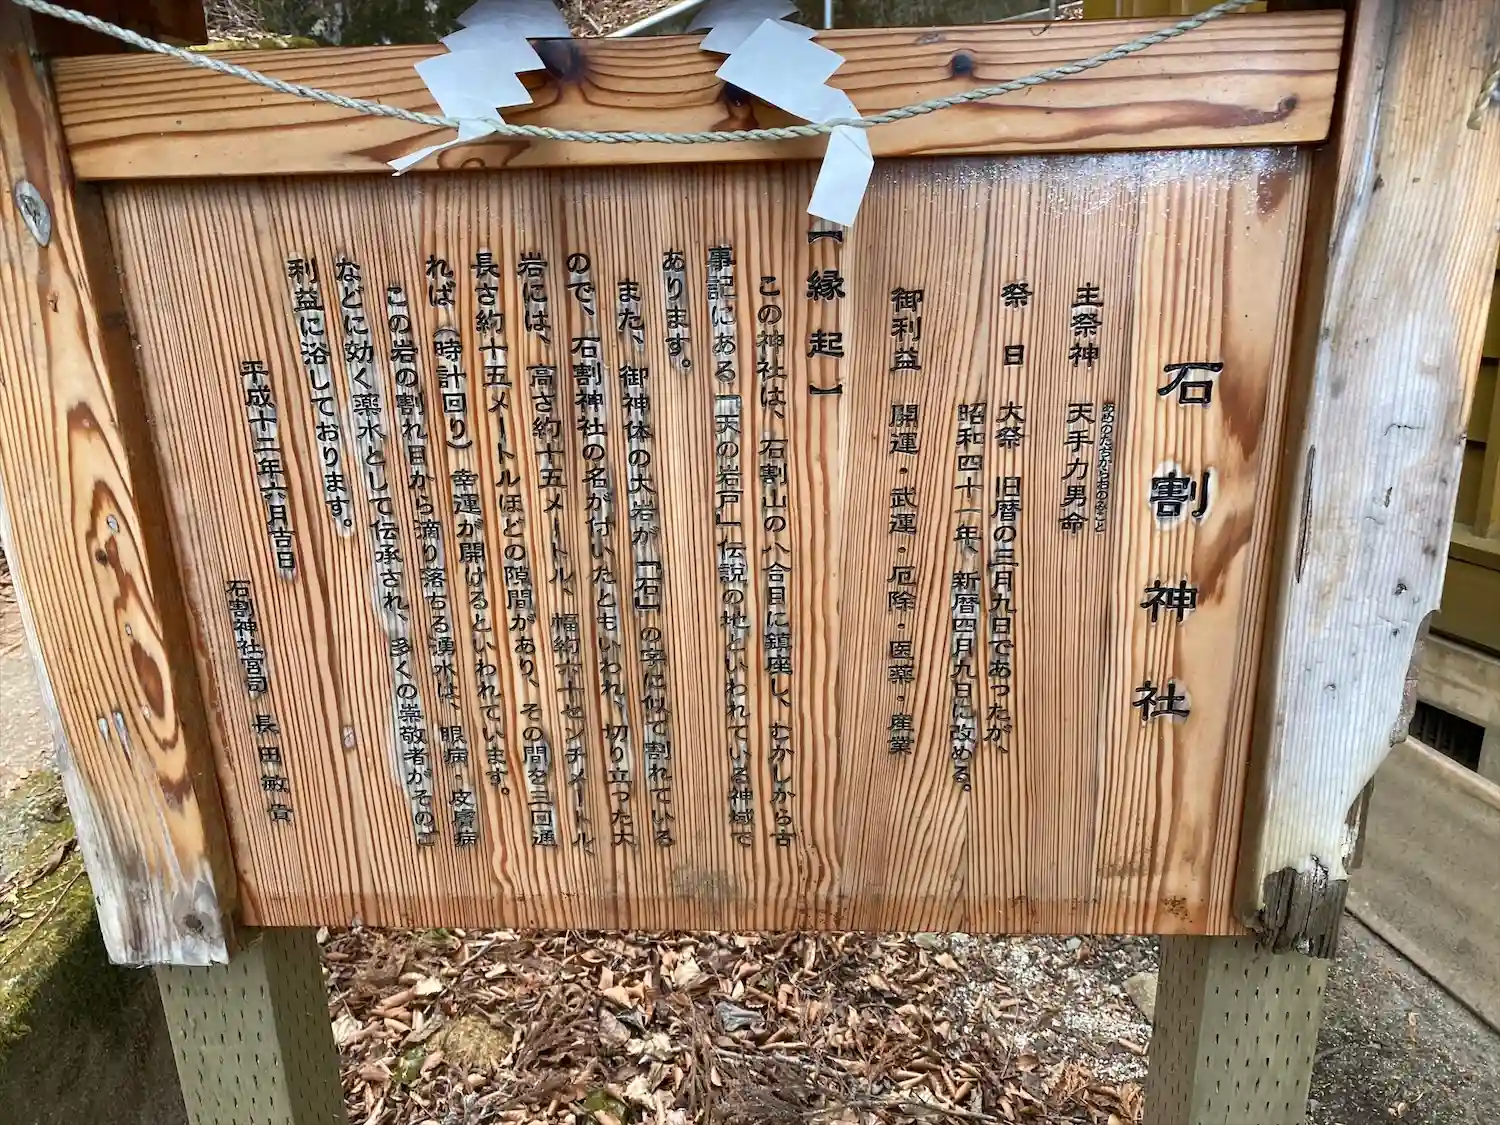 石割神社
主祭神 天手力男命
あめのたぢからおのみこと
祭 日 大祭 旧暦の三月九日であったが、
昭和四十一年、新暦四月九日に改める。
御利益 開運・武運・厄除・医薬・産業
【縁起】
この神社は、石割山の八合目に鎮座し、むかしから古
事記にある「天の岩戸」伝説の地といわれている神域で
あります。
また、御神体の大岩が「石」の字に似て割れている
ので、石割神社の名が付いたともいわれ、切り立った大
岩には、高さ約十五メートル、幅約六十センチメートル、
長さ約十五メートルほどの隙間があり、その間を三回通
れば（時計回り）幸運が開けるといわれています。
この岩の割れ目から滴り落ちる湧水は、眼病・皮膚病
などに効く薬水として伝承され、多くの崇敬者がそのご
利益に浴しております。
平成十二年六月吉日
石割神社宮司 長田敏